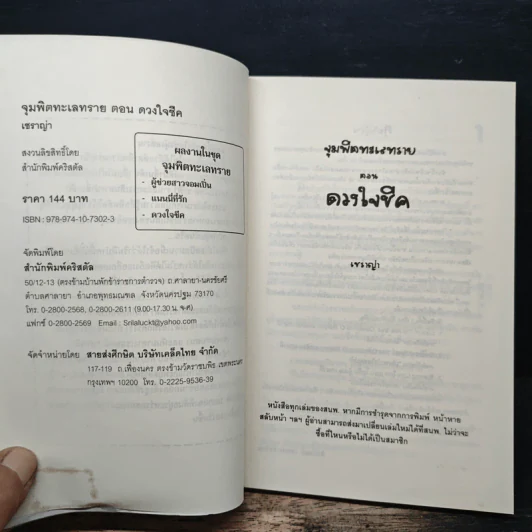 จุมพิตทะเลทราย ตอน ดวงใจชีค
เชราญ่า
สงวนลิขสิทธิ์โดย
สำนักพิมพ์คริสตัล
ราคา 144 บาท
ISBN : 978-974-10-7302-3
ผลงานในชุด
จุมพิตทะเลทราย
- ผู้ช่วยสาวจอมเปิ่น
- แมนนี่ที่รัก
- ดวงใจชีค
จัดพิมพ์โดย
สำนักพิมพ์คริสตัล
50/12-13 (ตรงข้ามบ้านพักข้าราชการตำรวจ) ถ.ศาลายา-นครชัยศรี
ตำบลศาลายา อำเภอพุทธมณฑล จังหวัดนครปฐม 73170
โทร. 0-2800-2568, 0-2800-2611 (9.00-17.30 น. จ-ศ)
แฟกซ์ 0-2800-2569 Email : Srilaluckt@yahoo.com
จัดจำหน่ายโดย สายส่งศึกษิต บริษัทเคล็ดไทย จำกัด
117-119 ถ.เฟื่องนคร ตรงข้ามวัดราชบพิธ เขตพระนคร
กรุงเทพฯ 10200 โทร. 0-2225-9536-39
จุมพิตทะเลทราย
ตอน
ดวงใจชีค
เชราญ่า
หนังสือทุกเล่มของสนพ. หากมีการชำรุดจากการพิมพ์ หน้าหาย
สลับหน้า ฯลฯ ผู้อ่านสามารถส่งมาเปลี่ยนเล่มใหม่ได้ที่สนพ. ไม่ว่าจะ
ซื้อที่ไหนหรือไม่ได้เป็นสมาชิก